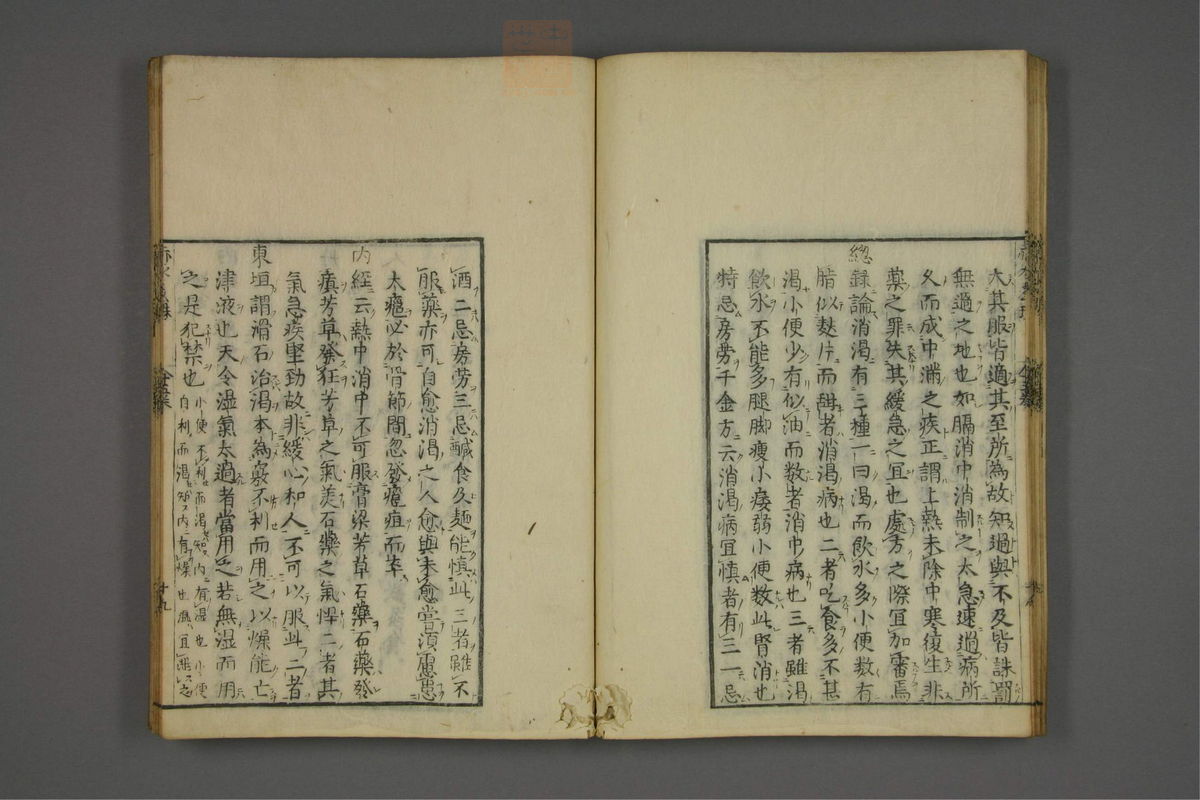 大其服皆適其至所為故知過與不及皆誅罰
無過之地也如膈消中消制之太急速過病所
久而成中滿之疾正謂上熱未除中寒復生非
藥之罪失其緩急之宜也處方之際宜加審焉
總錄論消渴有三種一曰渴而飲水多小便数有
脂似麩片而甜者消渴病也二者吃食多不甚
渴小便少有似油而数者消中病也三者雖渴
飲水不能多腿脚瘦小痿弱小便数此腎消也
特忌房勞千金方云消渴病宜慎者有三一忌
酒二忌房劳三忌鹹食及麺能慎此三者雖不
服藥亦可自愈消渴之人愈與未愈嘗須慮患
大癰必於骨節間忽發癰疽而卒
内經云熱中消中不可服膏粱芳草石藥石藥發
癲芳草發狂芳草之氣美石藥之氣悍二者其
氣急疾堅勁故非緩心和人不可以服此二者
東垣謂滑石治渴本為竅不利而用之以燥能亡
津液也天令湿氣太過者當用之若無湿而用
之是犯禁也小便不利而渴知内有湿也小便
自利而渴知内有燥也宜之